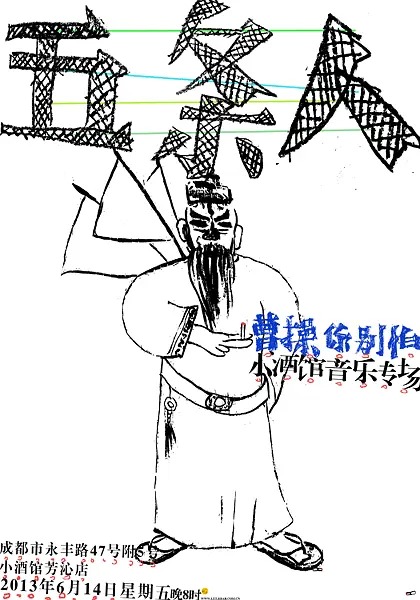 五条人
曹操你别怕
小酒馆音乐专场
成都市永丰路47号附5号
小酒馆芳沁店
2013年6月14日星期五晚8时